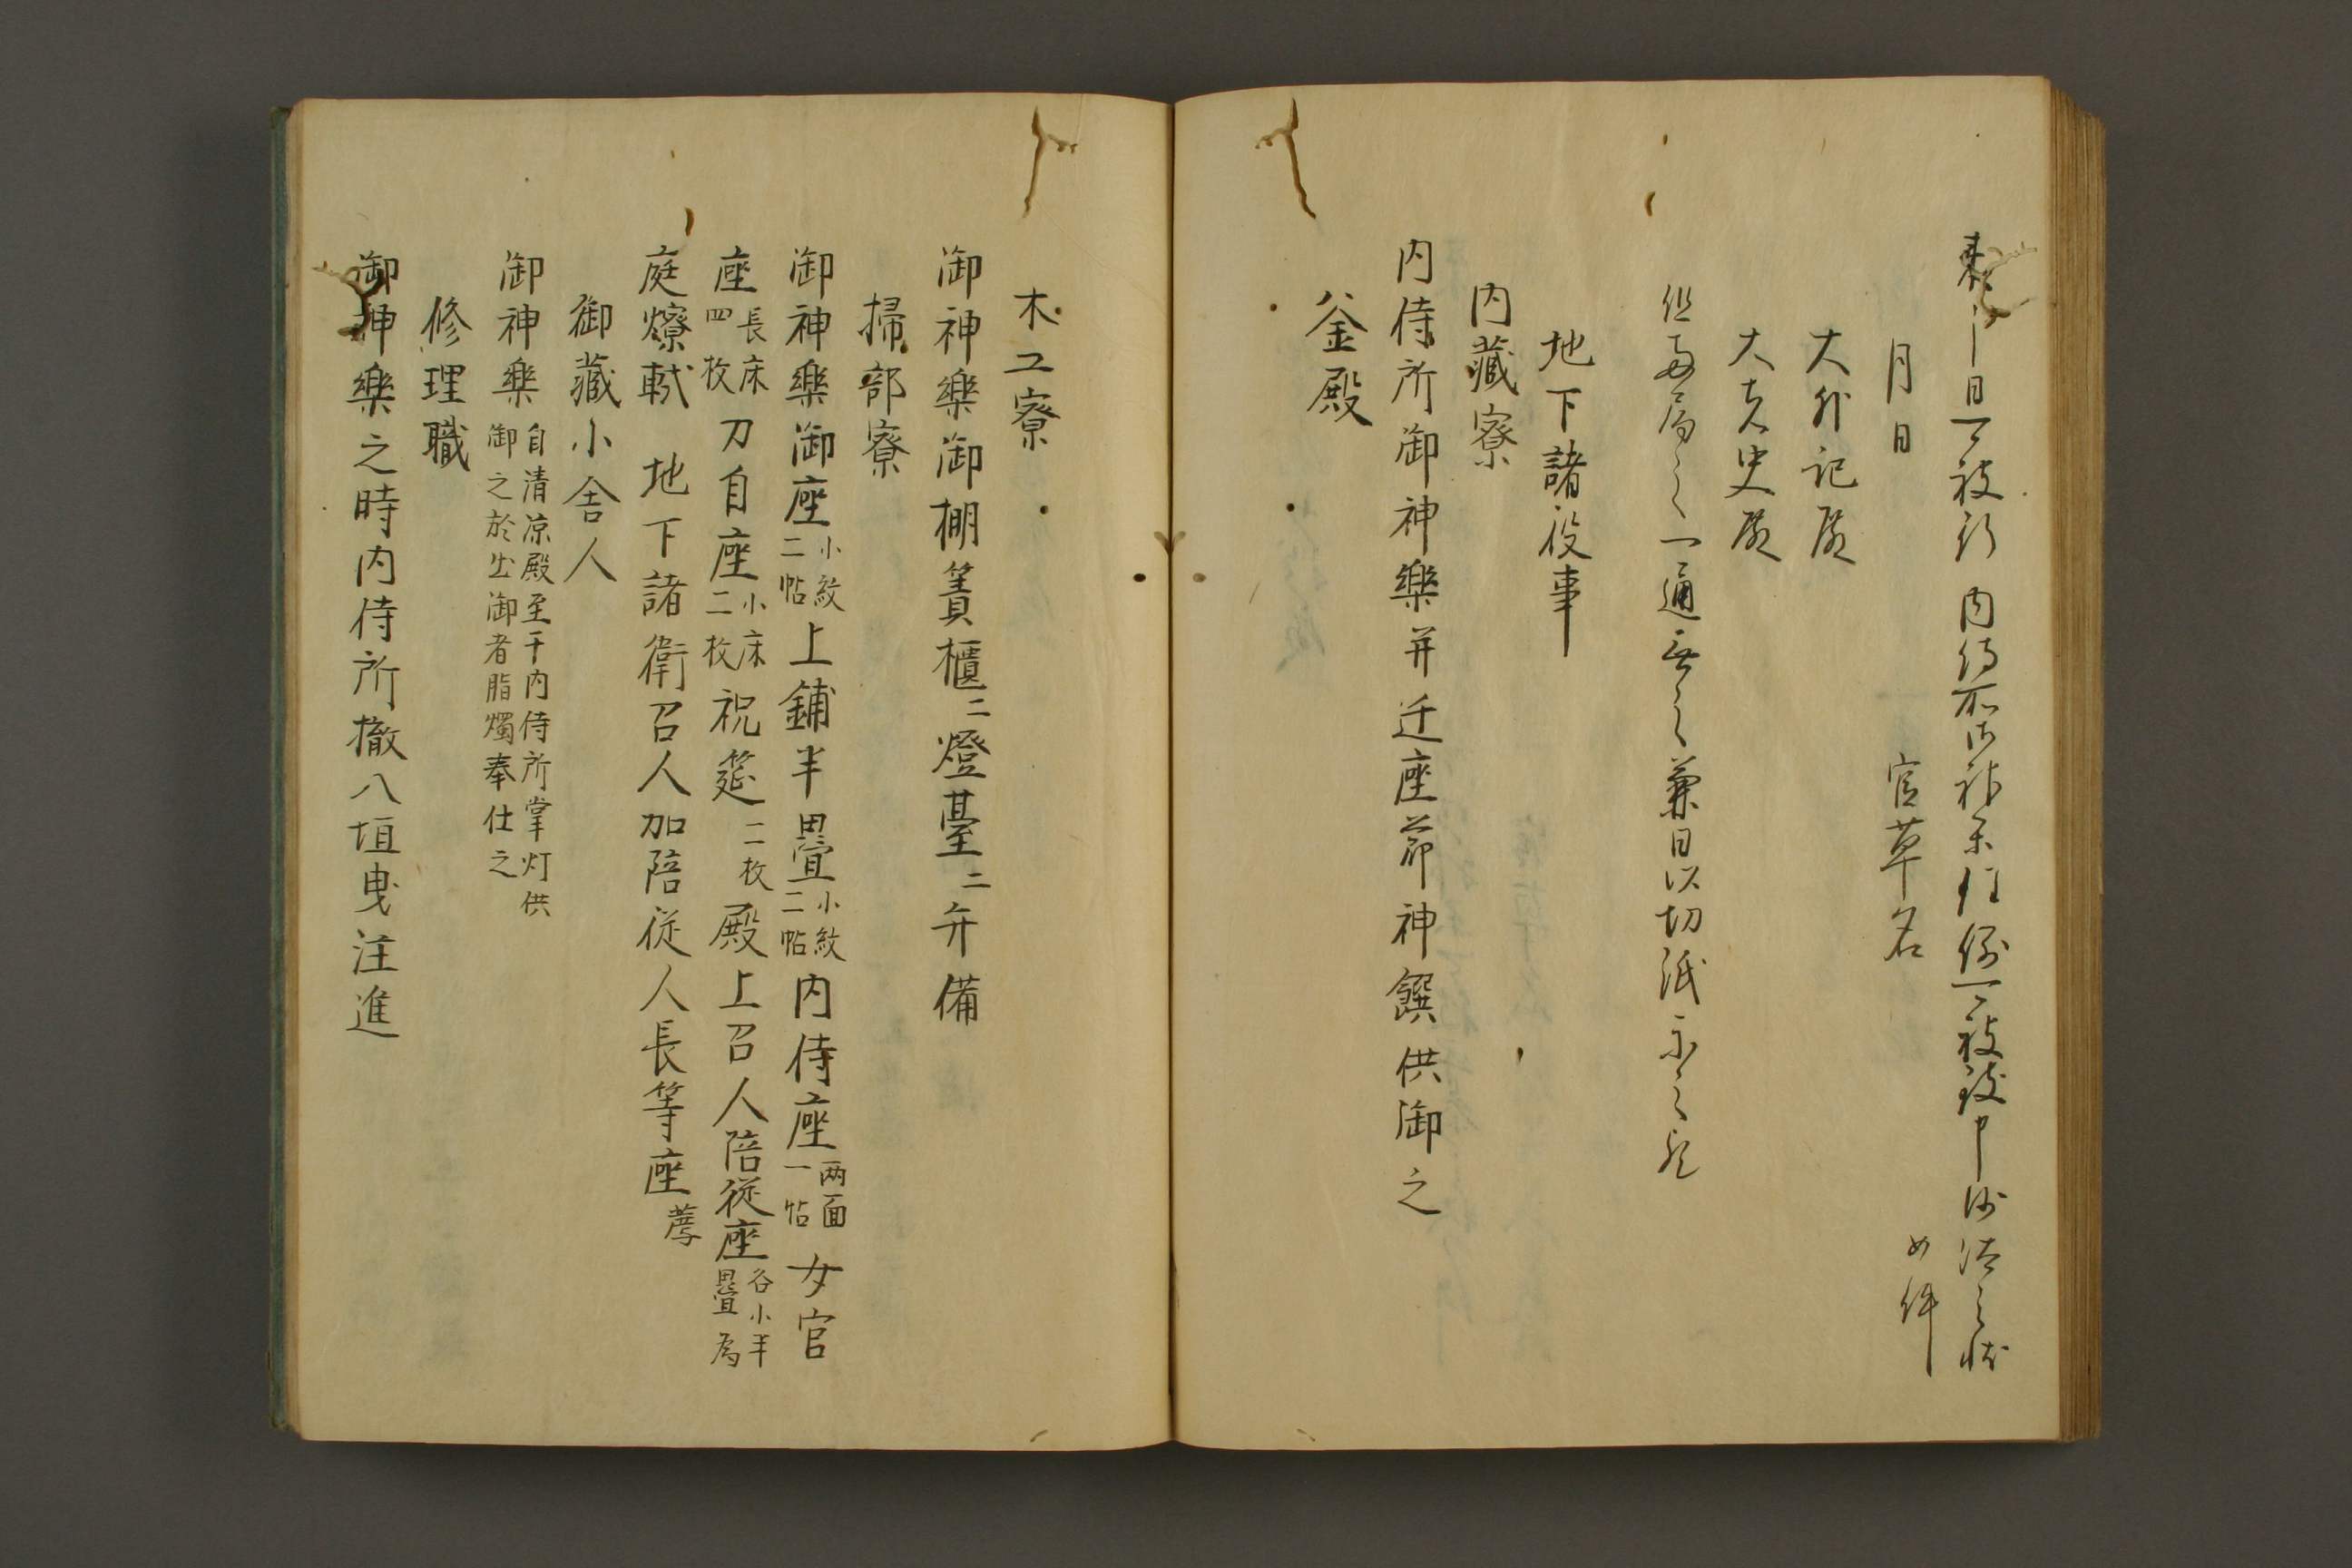 来十日可被行内侍所御神楽任例可被致申沙汰之状
如件
月日　官草名
大外記殿
大夫史殿
但両局之一通無之兼日以切紙示之
地下諸役事
内藏寮
内侍所御神樂并迁座莭神饌供御之
釜殿
木工寮
御神樂御棚簀櫃二燈臺二弁備
掃部寮
御神樂御座小紋二帖上鋪半疊小紋二帖内侍座両面一帖女官
座長床四枚刀自座小床二枚祝筵二枚殿上召人陪従座各小半疊為
庭燎軾　地下諸衛召人加陪従人長等座薦
御藏小舎人
御神樂自清凉殿至于内侍所掌灯供
御之於出御者脂燭奉仕之
修理職
御神樂之時内侍所撤八垣曳注進